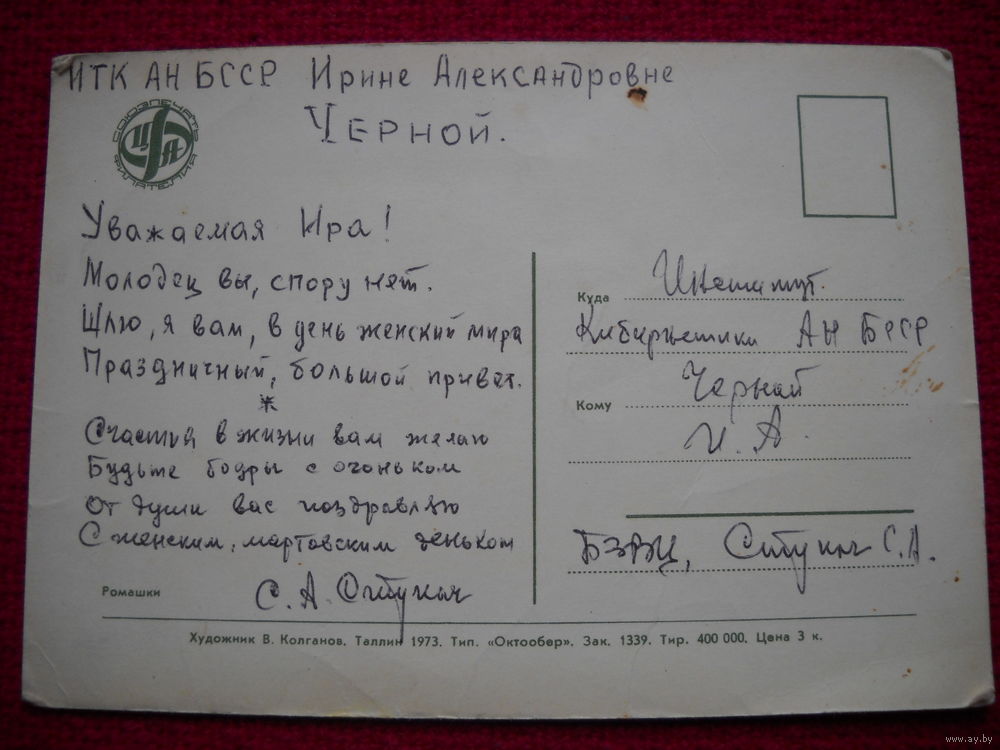 ИТК АН БССР Ирине Александровне
Черной.
СОЮЗПЕЧАТЬ
ЦФА
ФИЛАТЕЛИЯ
Уважаемая Ира!
Молодец вы, спору нет.
Шлю, я вам, в день женский мира
Праздничный, большой привет.
*
Счастья в жизни вам желаю
Будьте бодры с огоньком
От души вас поздравляю
С женским, мартовским деньком
С. А.
Ромашки
Куда Институт.
Кибернетики АН БССР
Кому Черной
И. А.
С. А.
Художник В. Колганов. Таллин 1973. Тип. «Октообер». Зак. 1339. Тир. 400 000. Цена 3 к.
www.ay.by